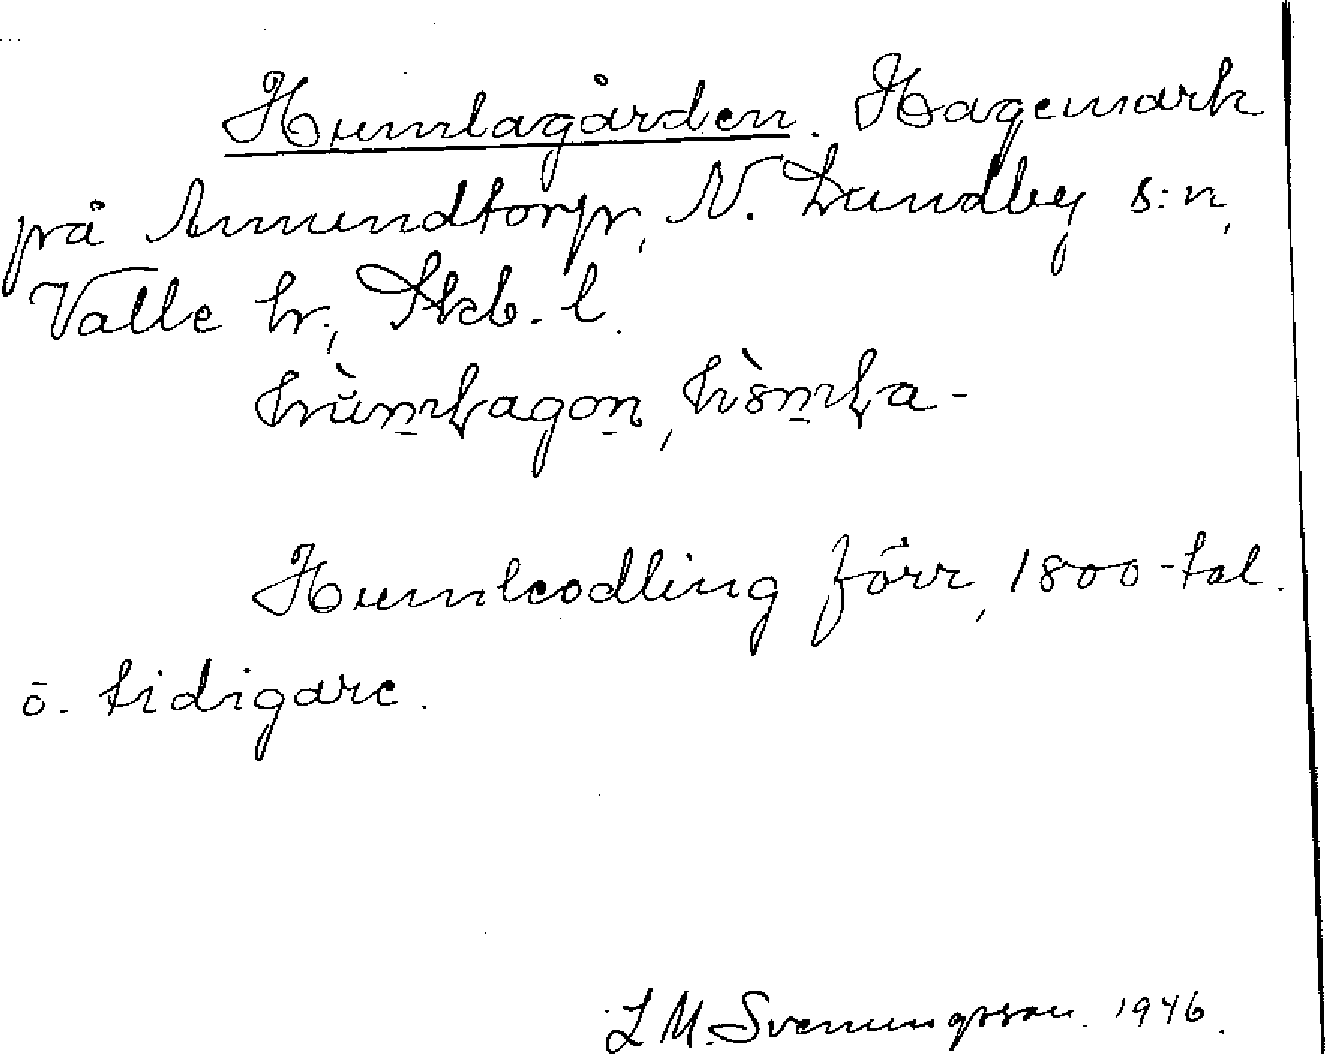 Humlagården. Hagemark
på Amundtorp, N. Lundby s:n,
Valle hr., Skb. l.
Humleodling förr, 1800-tal.
o. tidigare.
L M. Svenungsson. 1946.